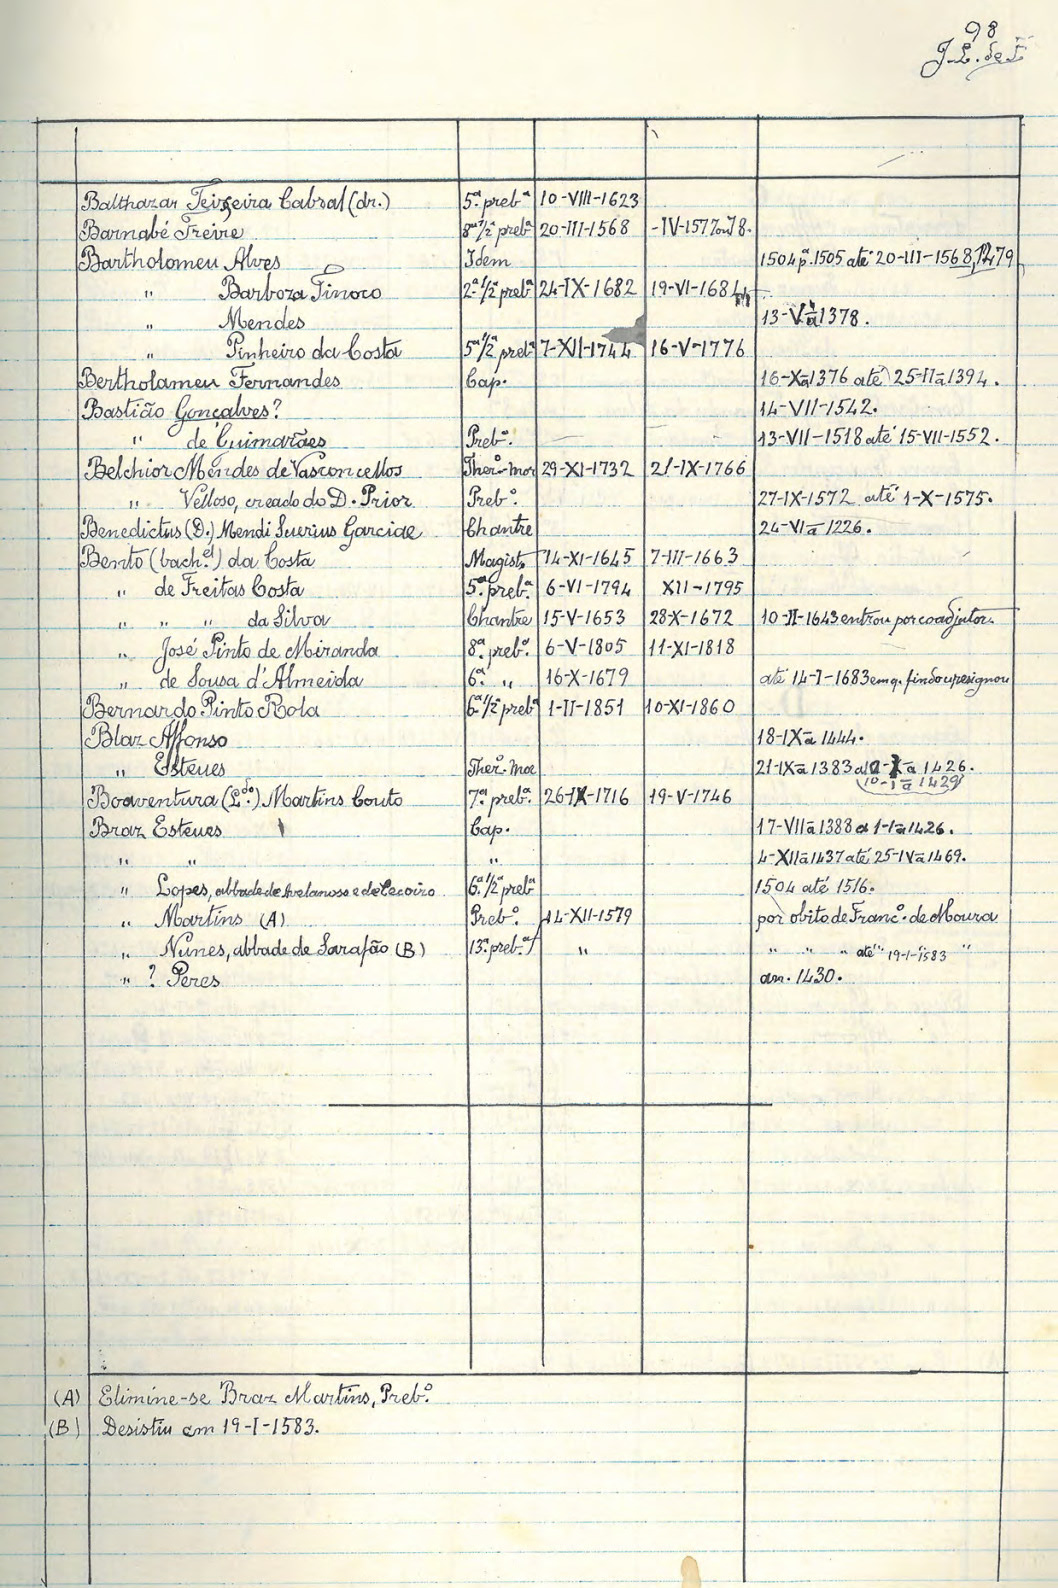 98
Balthazar Teixeira Cabral (dr.) 5.ª preb.ª 10-VIII-1623
Barnabé Freire 8.ª 1/2 preb.ª 20-III-1568 -IV-1577 ou 78.
Bartholomeu Alves Idem 1504 p.ª 1505 até 20-III-1568,
" Barboza Tinoco 2.ª 1/2 preb.ª 24-IX-1682 19-VI-1684
" Mendes 13-V-ª 1378.
" Pinheiro da Costa 5.ª 1/2 preb.ª 7-XII-1744 16-V-1776
Bertholameu Fernandes Cap. 16-X-ª 1376 até 25-II ª 1394.
Bastião Gonçalves? 14-VII-1542.
" de Guimarães Preb.º 13-VII-1518 até 15-VII-1552.
Belchior Mendes de Vasconcellos Thes.º-mor 29-XI-1732 21-IX-1766
" Velloso, creado do D. Prior Preb.º 27-IX-1572 até 1-X-1575.
Benedictus (D.) Mendi Suerius Garciae Chantre 24-VI ª 1226.
Bento (bach.el) da Costa Magist. 14-XI-1645 7-III-1663
" de Freitas Costa 5.ª preb.ª 6-VI-1794 XII-1795
" " " da Silva Chantre 15-V-1653 28-X-1672 10-II-1643 entrou por coadjutor.
" José Pinto de Miranda 8.ª preb.ª 6-V-1805 11-XI-1818
" de Sousa d'Almeida 6.ª " 16-X-1679 até 14-I-1683 em q. findou
Bernardo Pinto Rola 6.ª 1/2 preb.ª 1-II-1851 10-XI-1860
Blaz Affonso 18-IX ª 1444.
" Esteves Thes.º-mor 21-IX ª 1383 a ª 1426.
10-I ª 1429
Boaventura (L.do) Martins Couto 7.ª preb.ª 26-IX-1716 19-V-1746
Braz Esteves Cap. 17-VII ª 1388 a 1-I ª 1426.
" " " 4-XII ª 1437 até 25-IV ª 1469.
" Lopes, abbade de Avelanoso e de Cecoiro 6.ª 1/2 preb.ª 1504 até 1516.
" Martins (A) Preb.º 14-XII-1579 por obito de Franc.º de Moura
" Nunes, abbade de Sarafão (B) 13.ª preb.ª " " " " até 19-I-1583 "
" ? Peres an. 1430.
(A) Elimine-se Braz Martins, Preb.º
(B) Desistiu em 19-I-1583.